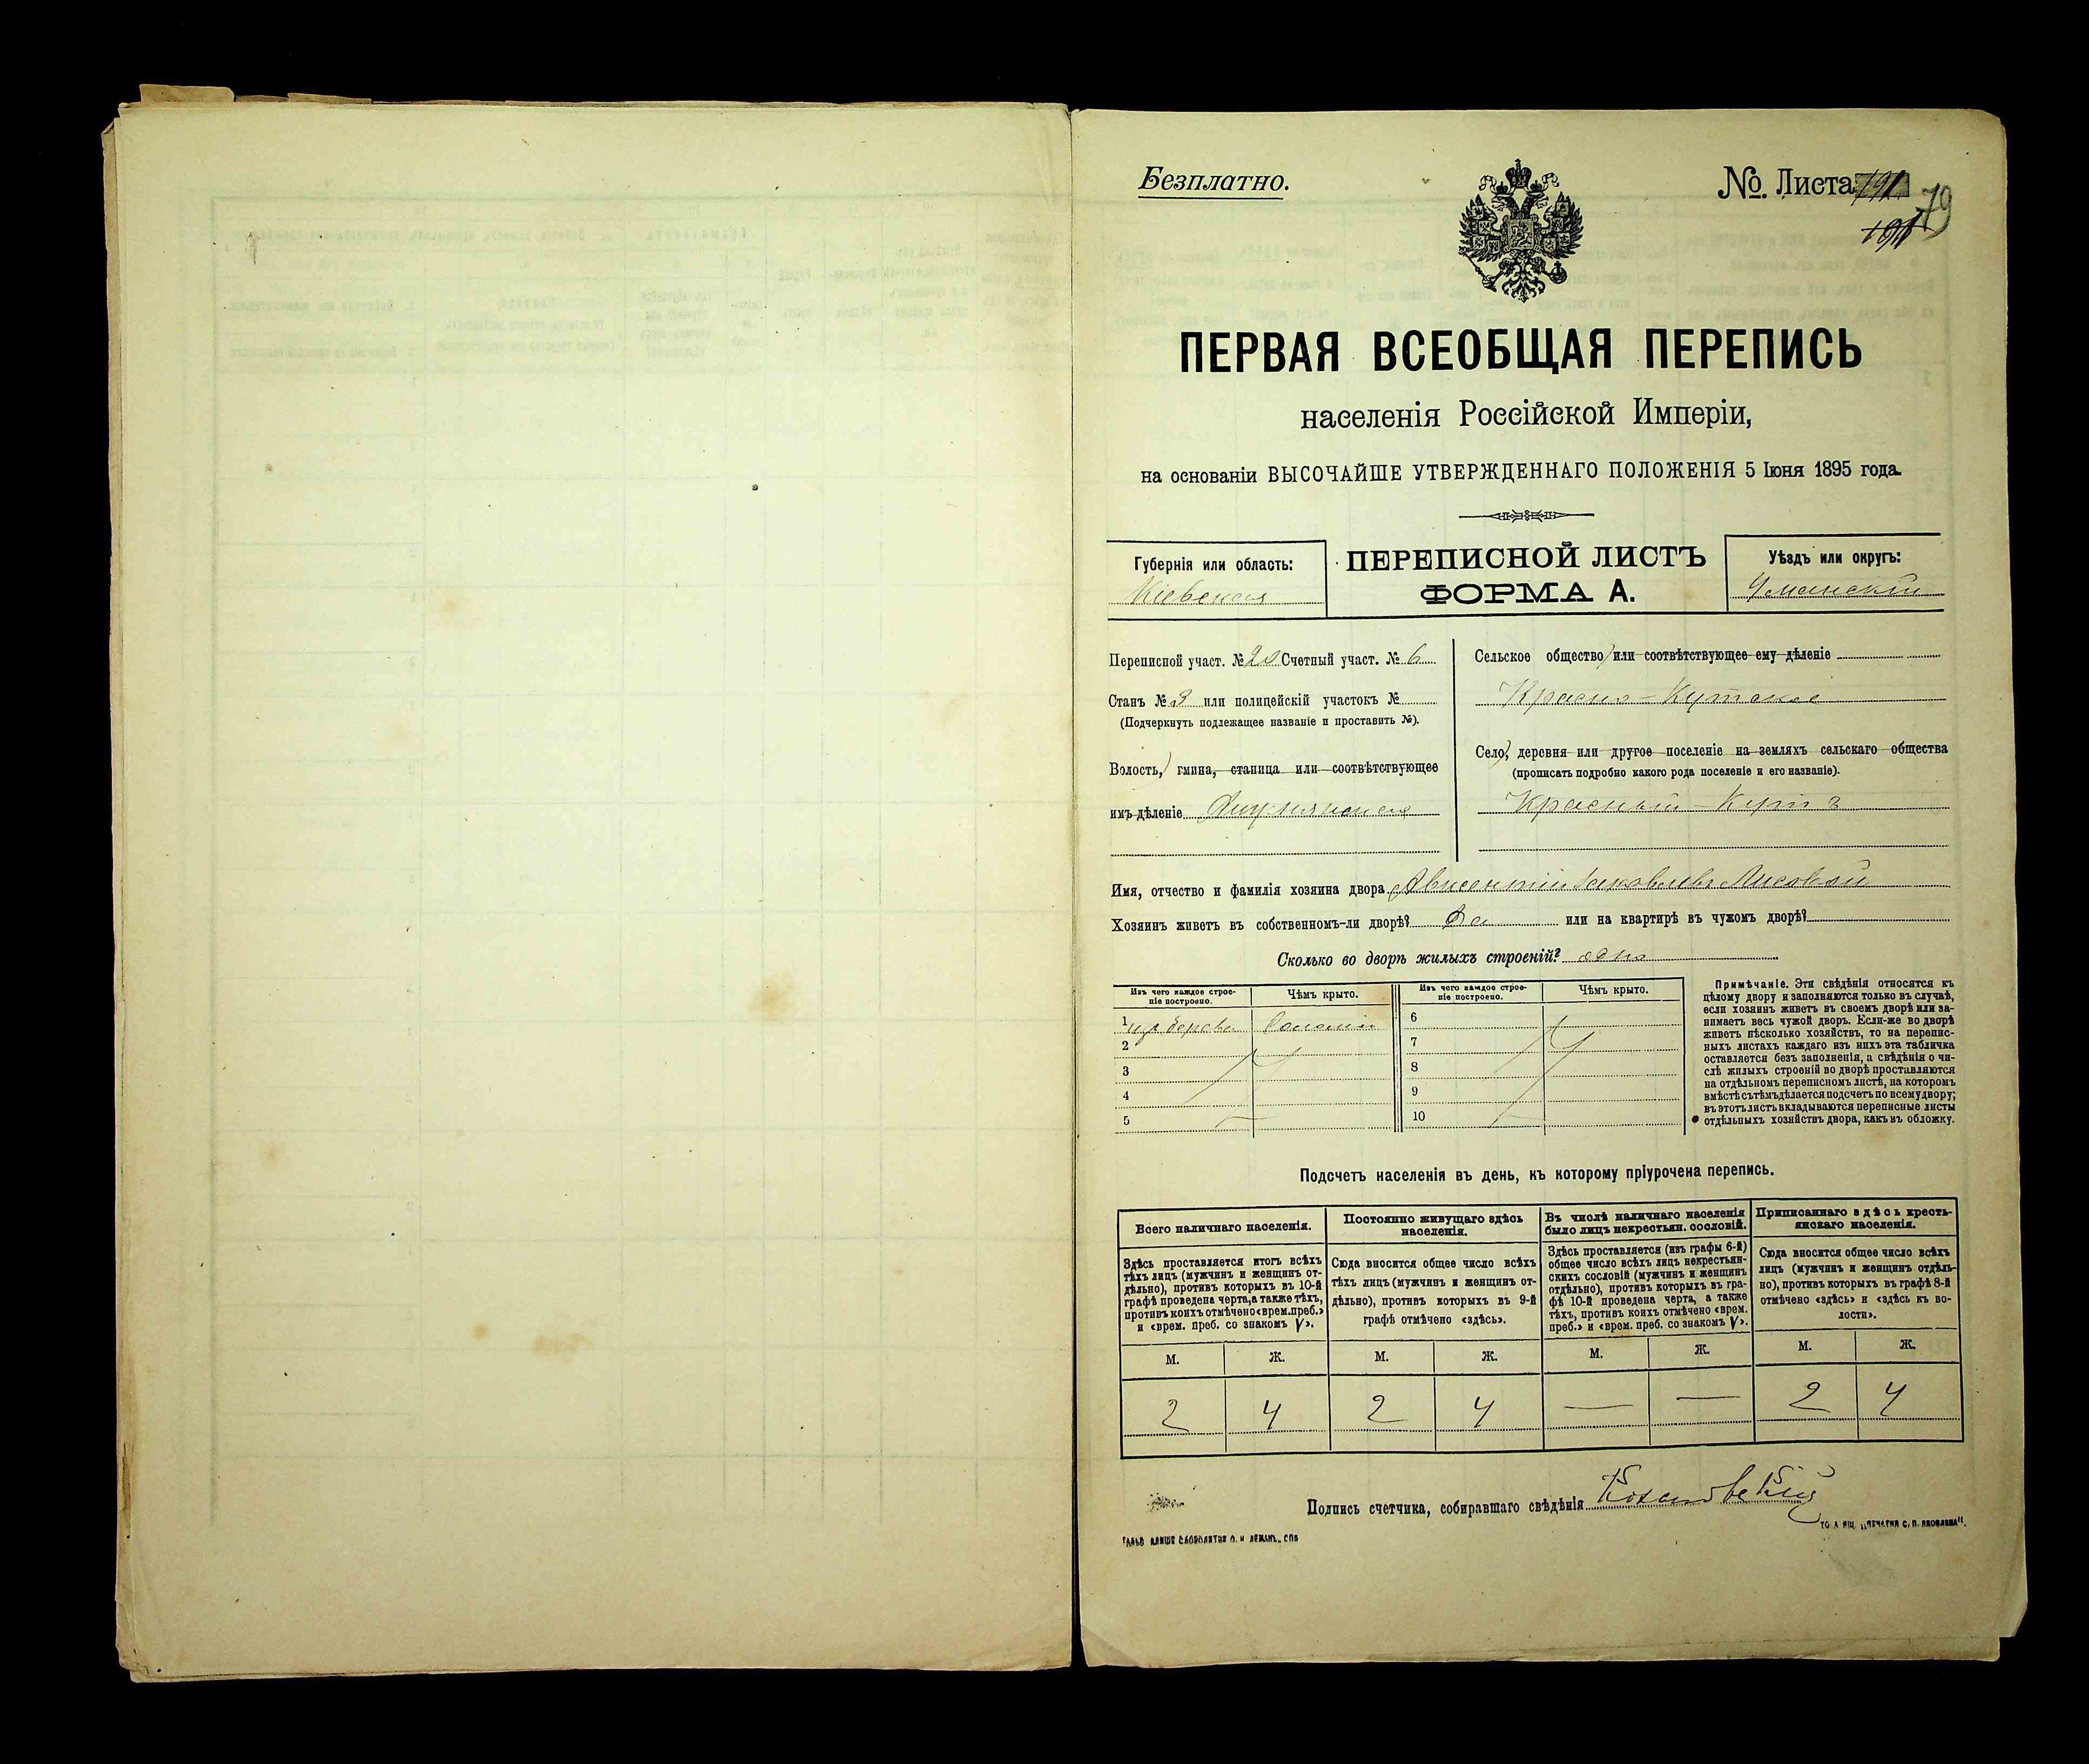 Безплатно.
№ Листа
79
ПЕРВАЯ ВСЕОБЩАЯ ПЕРЕПИСЬ
населенія Россійской Имперіи,
на основаніи ВЫСОЧАЙШЕ УТВЕРЖДЕННАГО ПОЛОЖЕНІЯ 5 Іюня 1895 года.
Губернія или область:
Кіевская
ПЕРЕПИСНОЙ ЛИСТЪ
ФОРМА А.
Уѣздъ или округъ:
Уманскій
Переписной участ. № 20 Счетный участ. № 6
Станъ № 3 или полицейскій участокъ №
(Подчеркнуть подлежащее названіе и проставить №).
Волость, гмина, станица или соотвѣтствующее
имъ дѣленіе
Сельское общество или соотвѣтствующее ему дѣленіе
Красно-Кутское
Село, деревня или другое поселеніе на земляхъ сельскаго общества
(прописать подробно какого рода поселеніе и его названіе).
Красный-Кутъ
Имя, отчество и фамилія хозяина двора Авксентій Яковлевъ Лисовой
Хозяинъ живетъ въ собственномъ-ли дворѣ? Да или на квартирѣ въ чужомъ дворѣ?
Сколько во дворѣ жилыхъ строеній? одно
Изъ чего каждое строе-
ніе построено.
Чѣмъ крыто.
Изъ чего каждое строе-
ніе построено.
Чѣмъ крыто.
1 изъ дерева Соломой
2
3
4
5
6
7
8
9
10
Примѣчаніе. Эти свѣдѣнія относятся къ
цѣлому двору и заполняются только въ случаѣ,
если хозяинъ живетъ въ своемъ дворѣ или за-
нимаетъ весь чужой дворъ. Если-же во дворѣ
живетъ нѣсколько хозяйствъ, то на перепис-
ныхъ листахъ каждаго изъ нихъ эта табличка
оставляется безъ заполненія, а свѣдѣнія о чи-
слѣ жилыхъ строеній во дворѣ проставляются
на отдѣльномъ переписномъ листѣ, на которомъ
вмѣстѣ съ тѣмъ дѣлается подсчетъ по всему двору;
въ этотъ листъ вкладываются переписные листы
отдѣльныхъ хозяйствъ двора, какъ въ обложку.
Подсчетъ населенія въ день, къ которому пріурочена перепись.
Всего наличнаго населенія.
Здѣсь проставляется итогъ всѣхъ
тѣхъ лицъ (мужчинъ и женщинъ от-
дѣльно), противъ которыхъ въ 10-й
графѣ проведена черта, а также тѣхъ,
противъ коихъ отмѣчено «врем. преб.»
и «врем. преб. со знакомъ V».
Постоянно живущаго здѣсь
населенія.
Сюда вносится общее число всѣхъ
тѣхъ лицъ (мужчинъ и женщинъ от-
дѣльно), противъ которыхъ въ 9-й
графѣ отмѣчено «здѣсь».
Въ числѣ наличнаго населенія
было лицъ некрестьян. сословій.
Здѣсь проставляется (изъ графы 6-й)
общее число всѣхъ лицъ некрестьян-
скихъ сословій (мужчинъ и женщинъ
отдѣльно), противъ которыхъ въ гра-
фѣ 10-й проведена черта, а также
тѣхъ, противъ коихъ отмѣчено «врем.
преб.» и «врем. преб. со знакомъ V».
Приписаннаго здѣсь кресть-
янскаго населенія.
Сюда вносится общее число всѣхъ
лицъ (мужчинъ и женщинъ отдѣль-
но), противъ которыхъ въ графѣ 8-й
отмѣчено «здѣсь» и «здѣсь къ во-
лости».
М. Ж. М. Ж. М. Ж. М. Ж.
2 4 2 4 — — 2 4
Подпись счетчика, собиравшаго свѣдѣнія